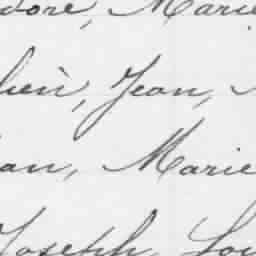 dore, Marie
lien, Jean,
an, Marie
Joseph, Lou